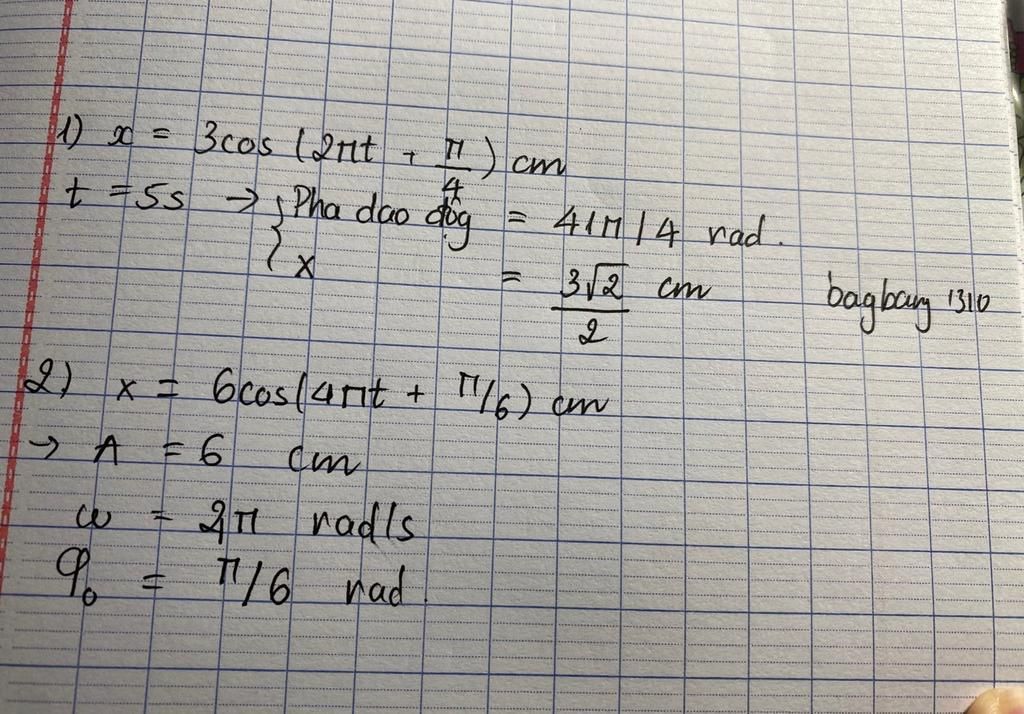 1) x = 3cos (2πt + π/4) cm
t = 5s → { Pha dao độg = 41π/4 rad.
x = 3√2/2 cm
bagbang 1310
2) x = 6cos(4πt + π/6) cm
→ A = 6 cm
ω = 2π rad/s
φ₀ = π/6 rad.